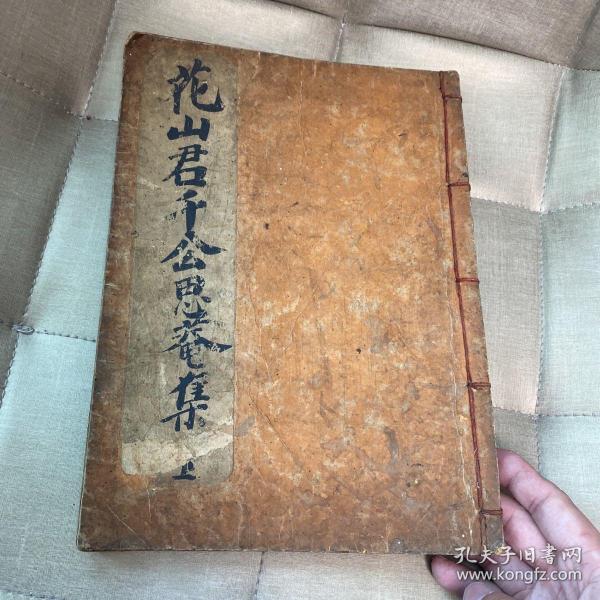 花山君千公思菴集
上
孔夫子旧書网
www.kongfz.com